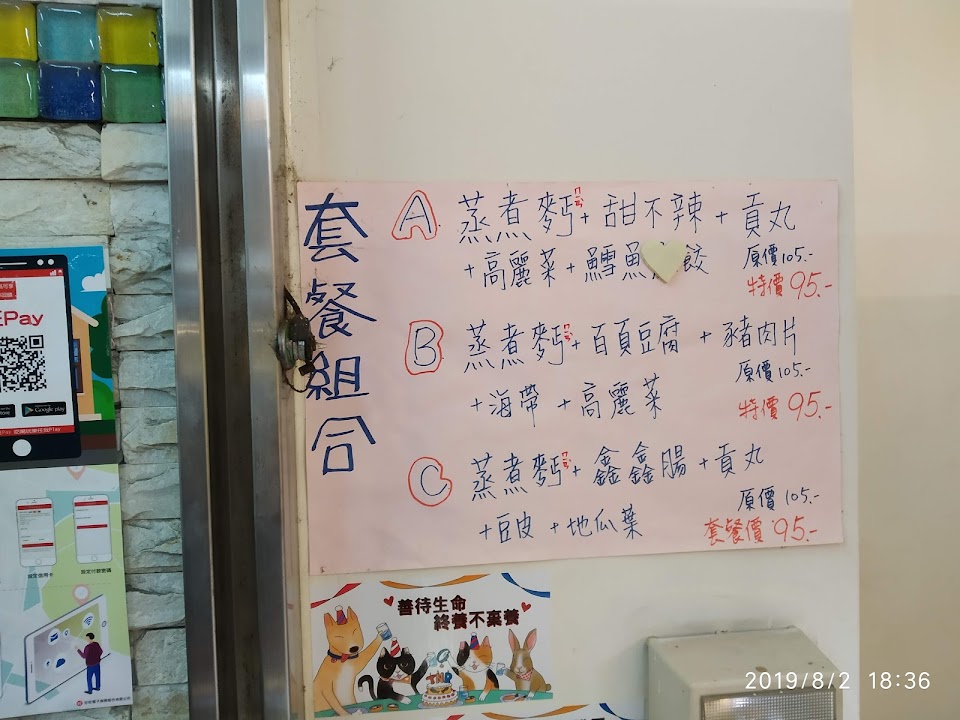 套餐組合
A 蒸煮麵ㄇㄞˋ+甜不辣+貢丸
+高麗菜+鱈魚 餃 原價105.-
特價95.-
B 蒸煮麵+百頁豆腐+豬肉片
原價105.-
+海帶+高麗菜 特價95.-
C 蒸煮麵+鑫鑫腸+貢丸
原價105.-
+豆皮+地瓜葉 套餐價95.-
EPay
Google play
設定信用卡 設定付款密碼
善待生命
終養不棄養
TNR
2019/8/2 18:36